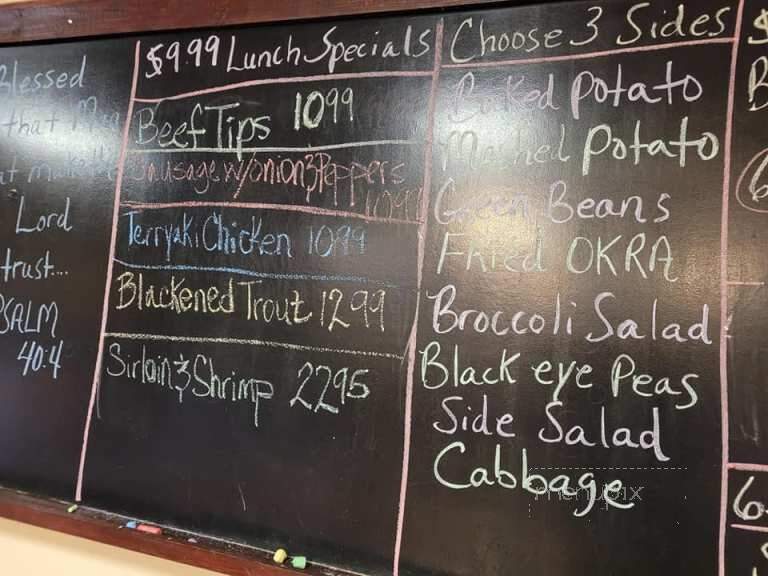 Blessed
that
Lord
trust...
PSALM
40:4
$9.99 Lunch Specials
Beef Tips 1099
Sausage w/onion & Peppers
1099
Terryaki Chicken 1099
Blackened Trout 1299
Sirloin & Shrimp 2295
Choose 3 Sides
Baked Potato
Mashed Potato
Green Beans
Fried OKRA
Broccoli Salad
Black eye Peas
Side Salad
Cabbage
menupix
$
B
6
6.